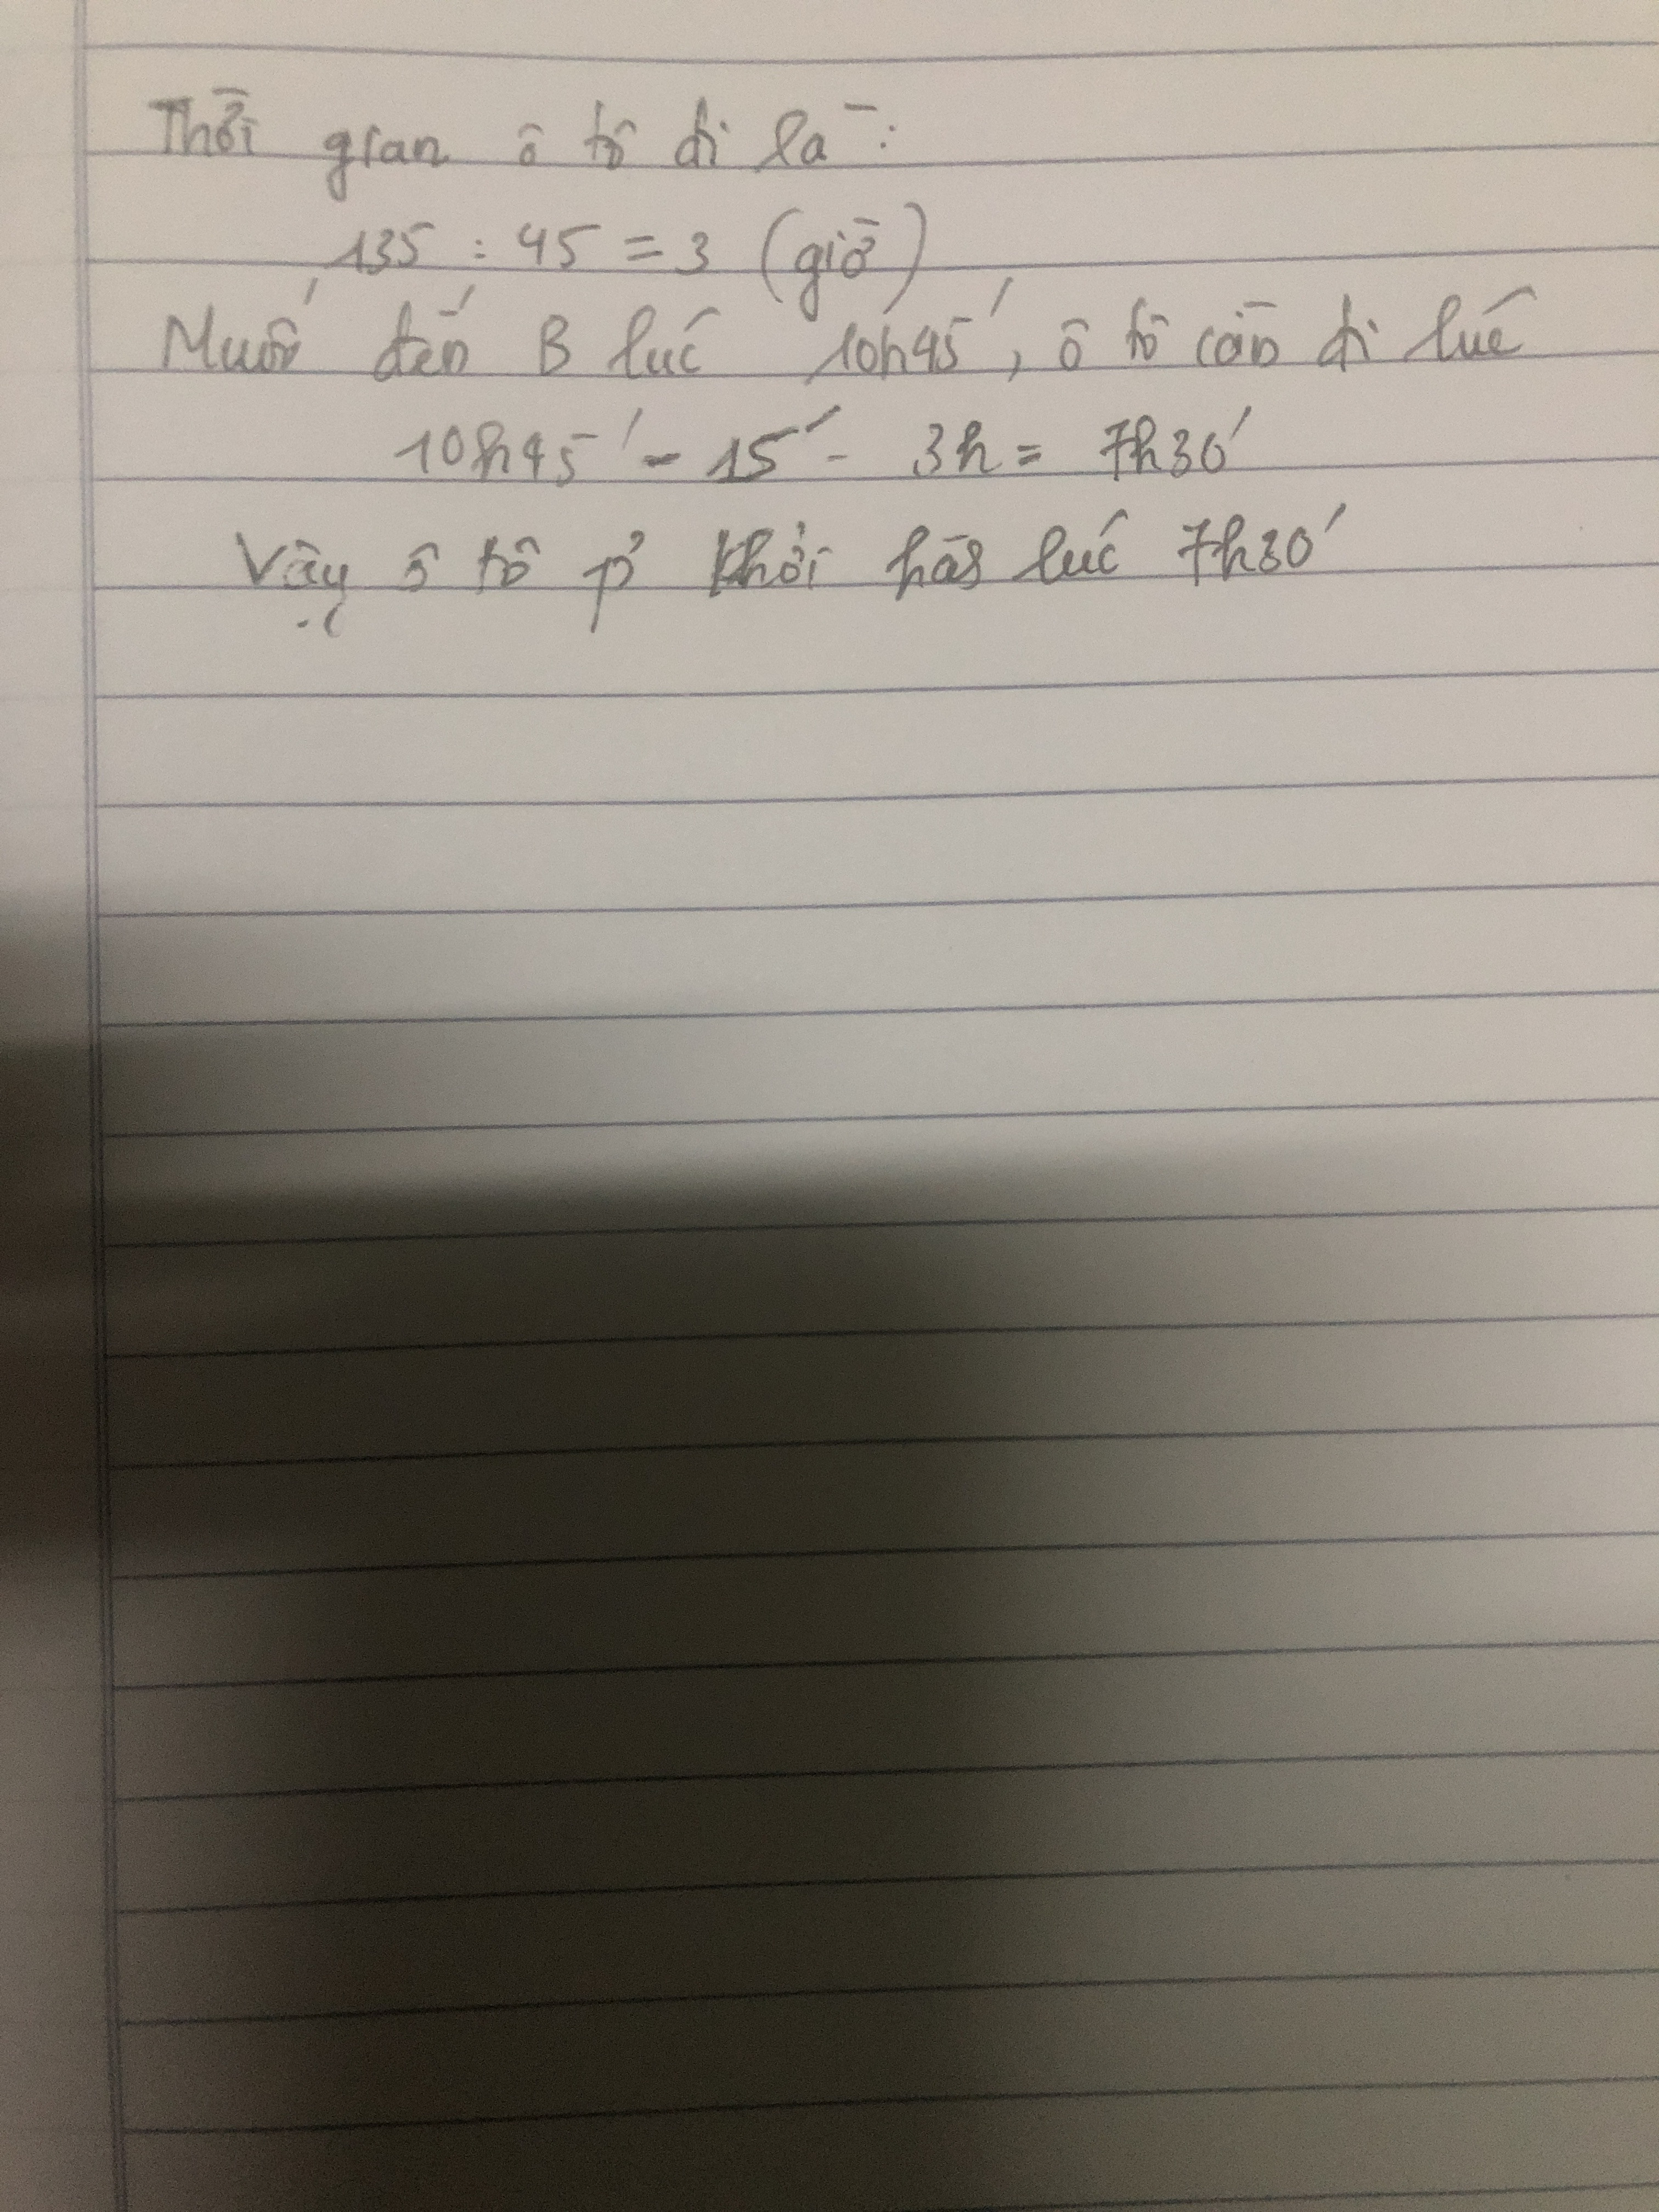 Thời gian ô tô đi là:
135 : 45 = 3 (giờ)
Muốn đến B lúc 10h45', ô tô cần đi lúc
10h45' - 15' - 3h = 7h30'
Vậy ô tô p' khởi hành lúc 7h30'